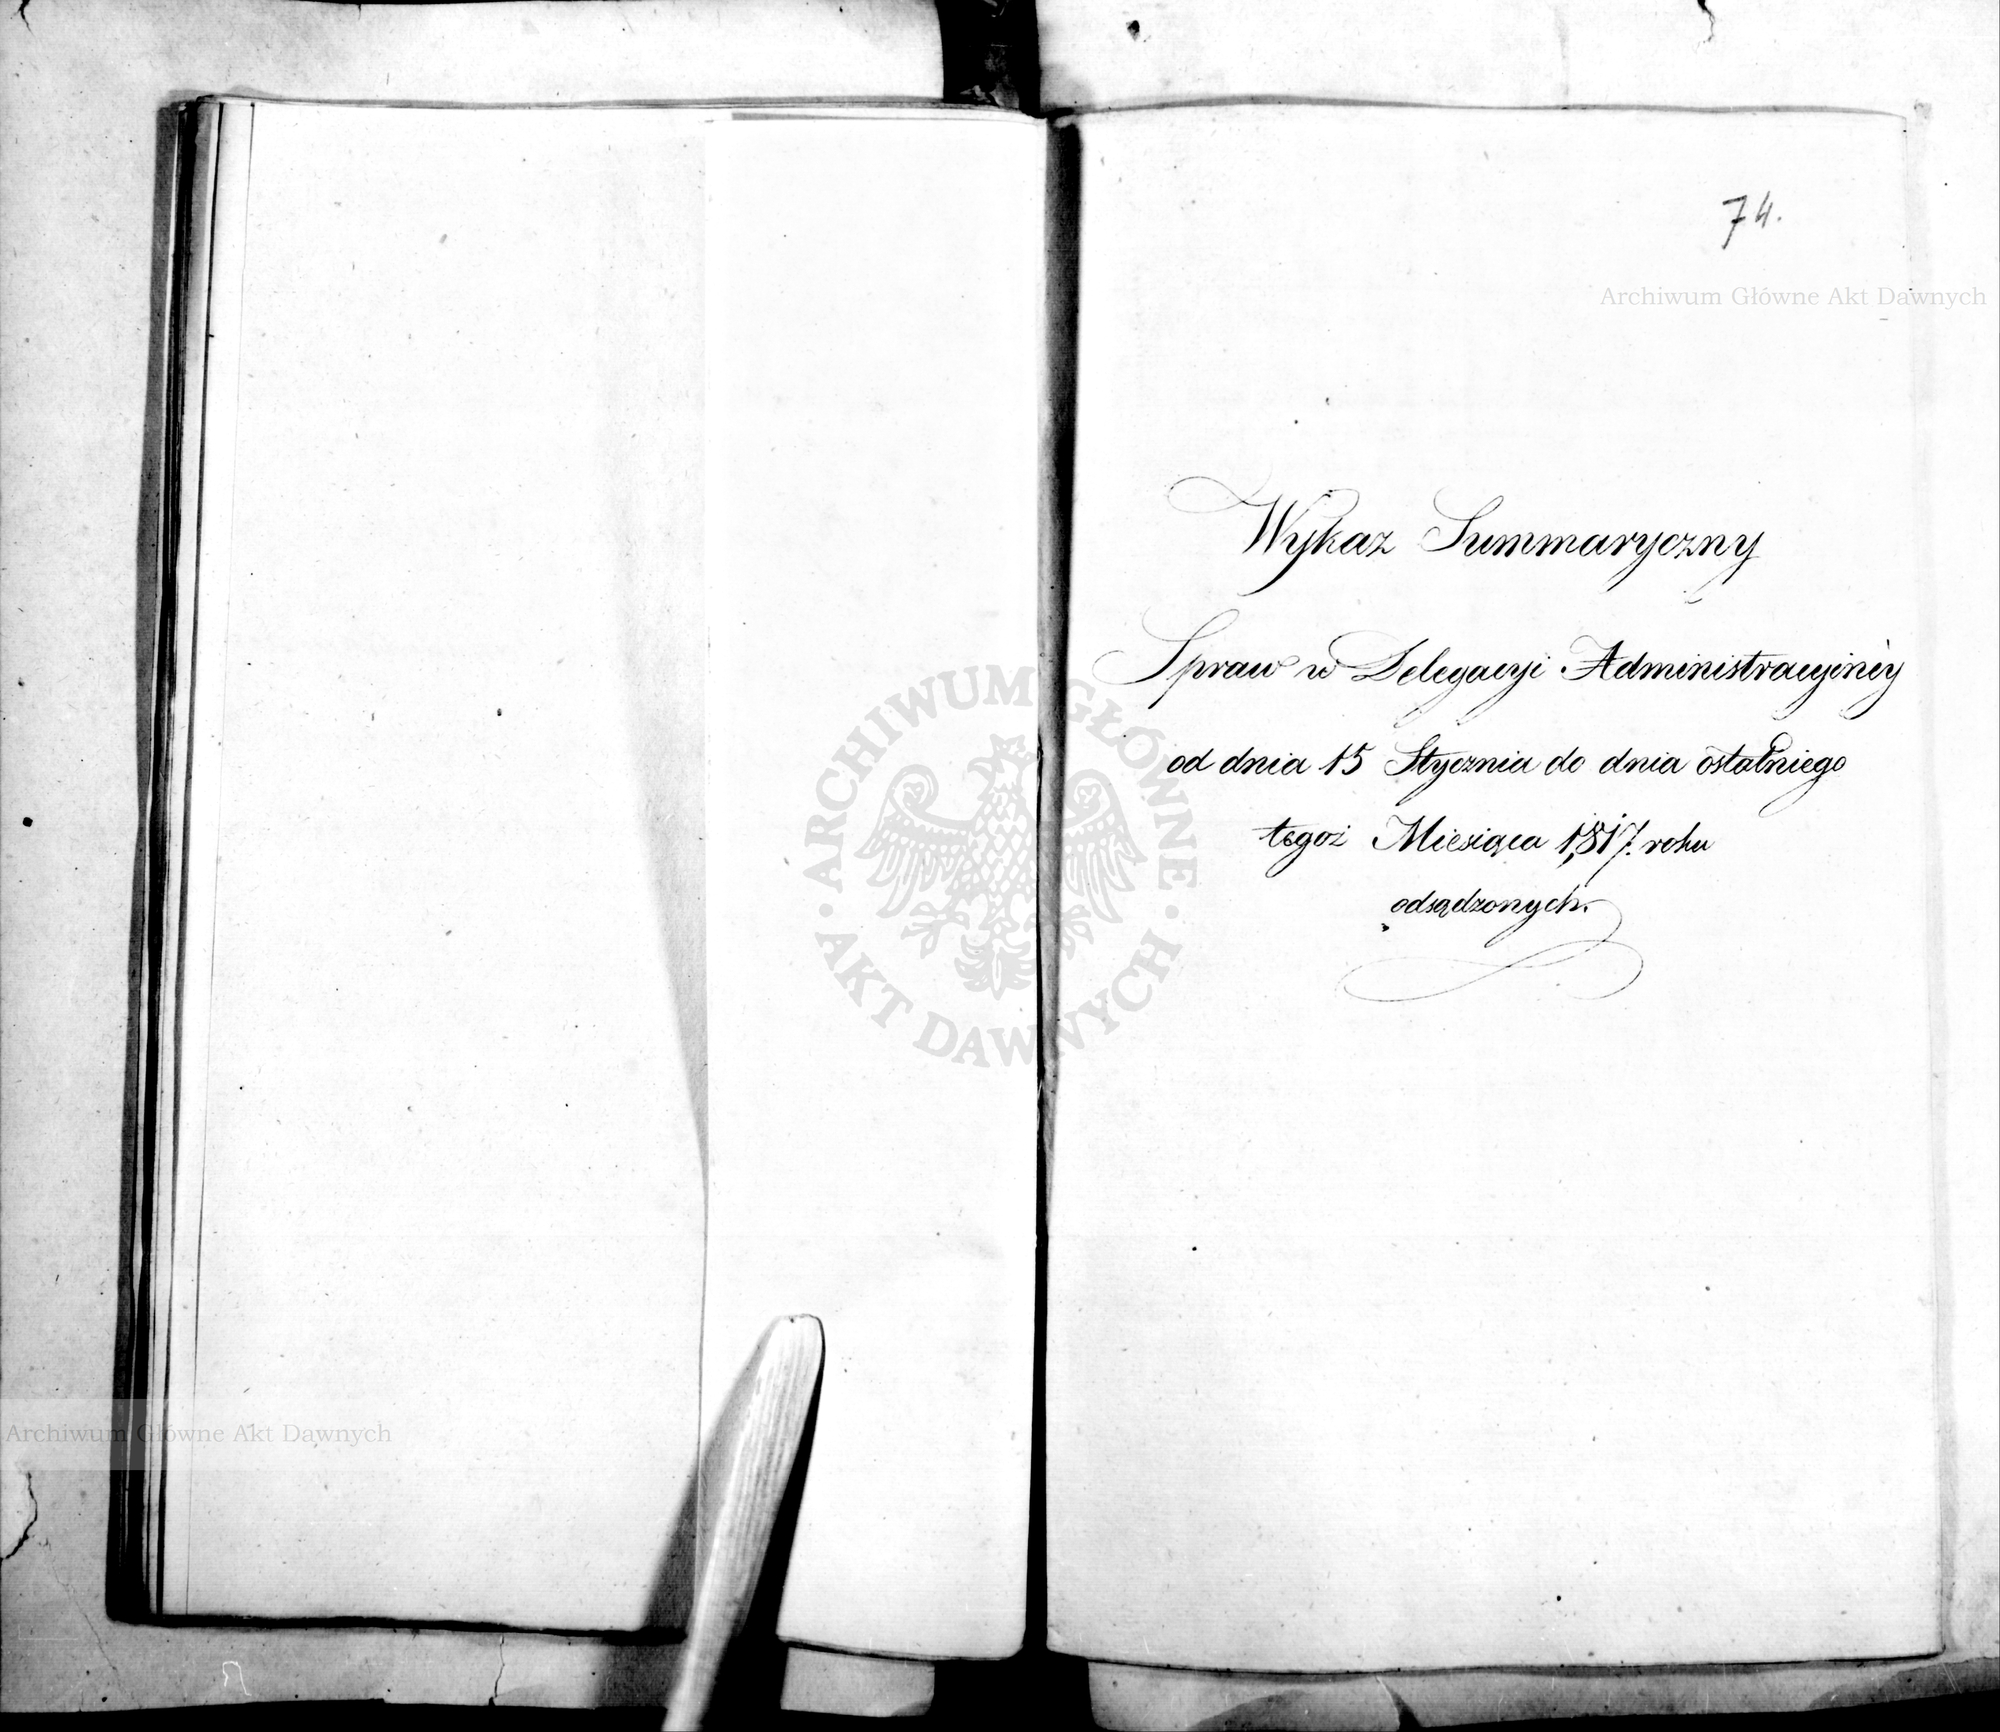 74.
Archiwum Główne Akt Dawnych
Wykaz Summaryczny
Spraw w Delegacyi Administracyinéy
od dnia 15 Stycznia do dnia ostatniego
tegoż Miesiąca 1817. roku
odsądzonych.
ARCHIWUM GŁÓWNE
AKT DAWNYCH
Archiwum Główne Akt Dawnych